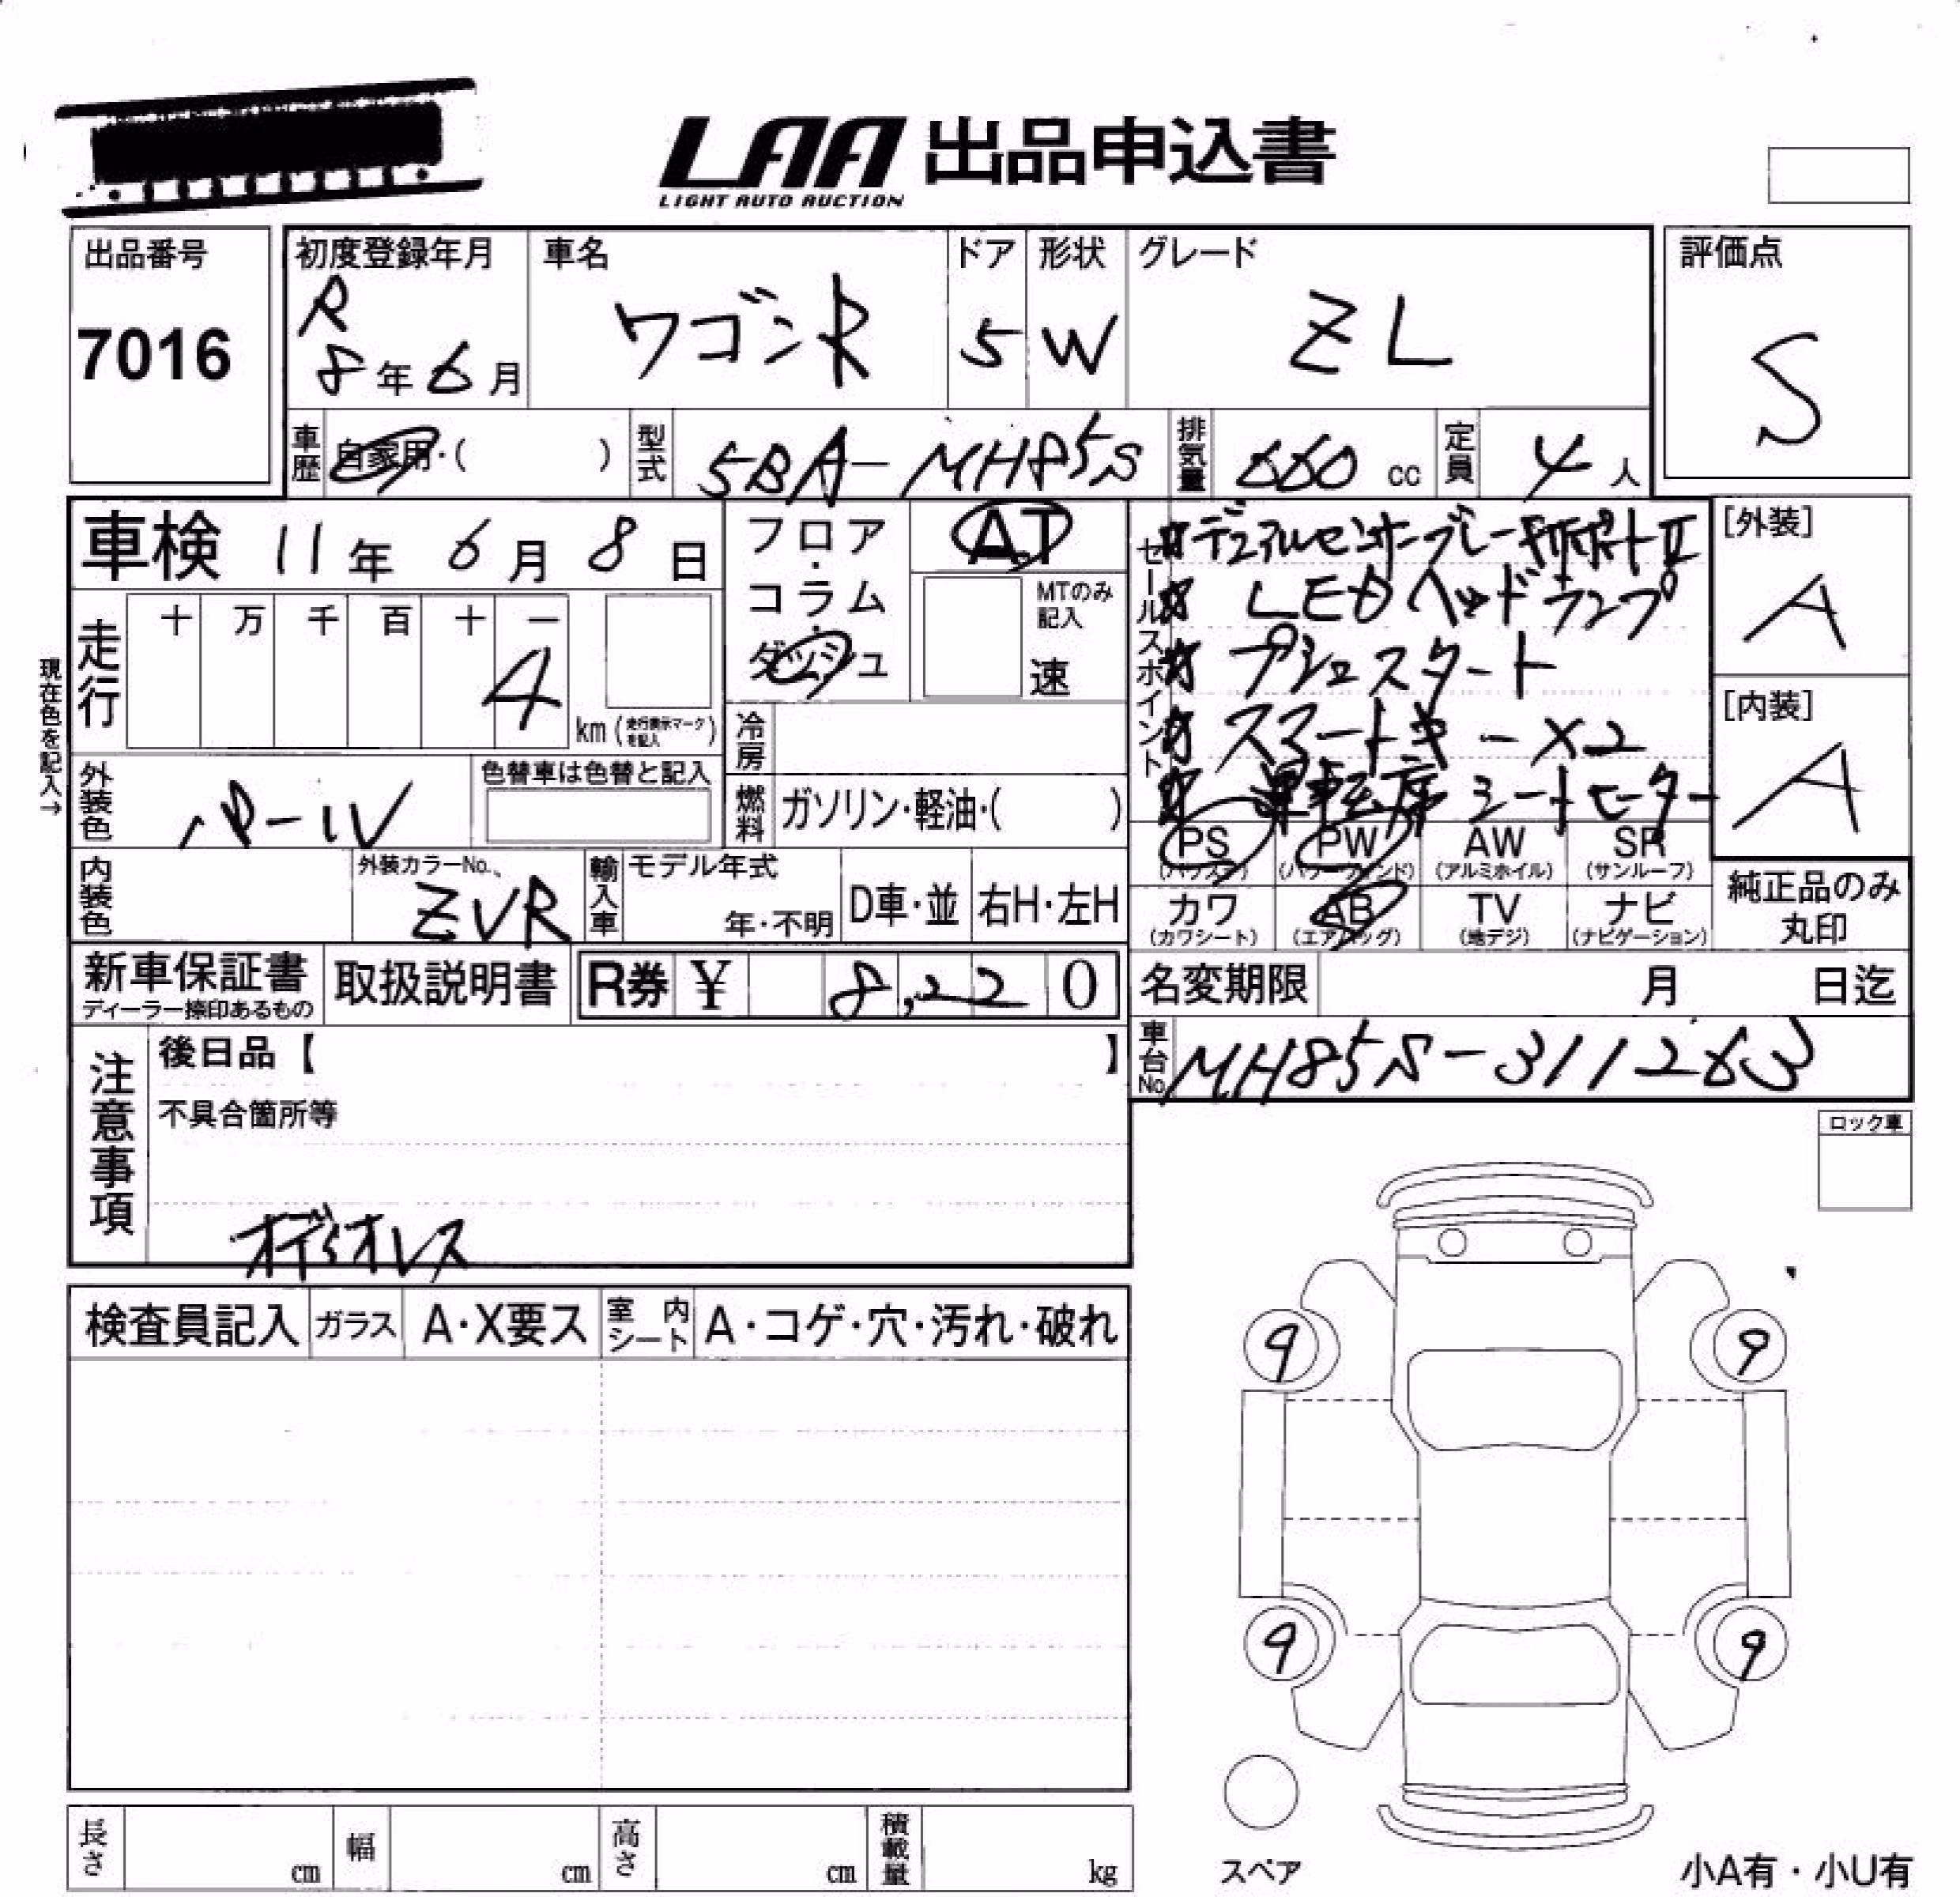 LAA 出品申込書
LIGHT AUTO AUCTION
出品番号
7016
初度登録年月
R
8年6月
車名
ワゴンR
ドア
5
形状
W
グレード
ZL
評価点
S
車歴
自家用・( )
型式
5BA-MH85S
排気量
660 cc
定員
4人
車検 11年 6月 8日
走行
十 万 千 百 十 一
4
km (走行表示マークを記入)
現在色を記入→
フロア・コラム・ダッシュ
AT
MTのみ記入
速
冷房
燃料
ガソリン・軽油・( )
セールスポイント
☆デュアルセンサーブレーキサポートⅡ
☆ LEDヘッドランプ
☆ プシュスタート
☆ スマートキーX2
☆ 運転席シートヒーター
[外装]
A
[内装]
A
外装色
パール
色替車は色替と記入
内装色
外装カラーNo.
ZVR
輸入車
モデル年式
年・不明
D車・並
右H・左H
PS
(パワステ)
PW
(パワーウィンド)
AW
(アルミホイル)
SR
(サンルーフ)
カワ
(カワシート)
AB
(エアバッグ)
TV
(地デジ)
ナビ
(ナビゲーション)
純正品のみ
丸印
新車保証書
ディーラー捺印あるもの
取扱説明書
R券 ¥ 8,220
名変期限 月 日迄
車台No.
MH85S-311263
注意事項
後日品【 】
不具合箇所等
オーディオレス
ロック車
検査員記入
ガラス
A・X要ス
室内シート
A・コゲ・穴・汚れ・破れ
9 9
9 9
スペア
小A有・小U有
長さ cm
幅 cm
高さ cm
積載量 kg